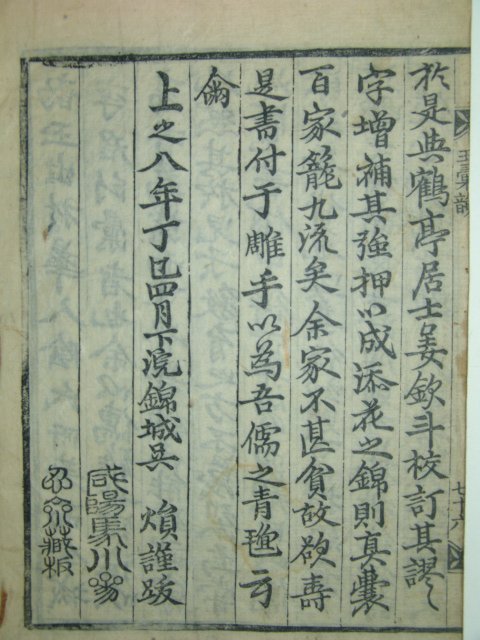 於是與鶴亭居士姜欽斗校訂其謬
字增補其強押以成添花之錦則真囊
百家籠九流矣余家不甚貧故欲壽
是書付于雕手以為吾儒之青氊云
爾
上之八年丁巳四月下浣錦城吳 煩謹跋
咸陽集川
藏板
玉彙韻
七十六